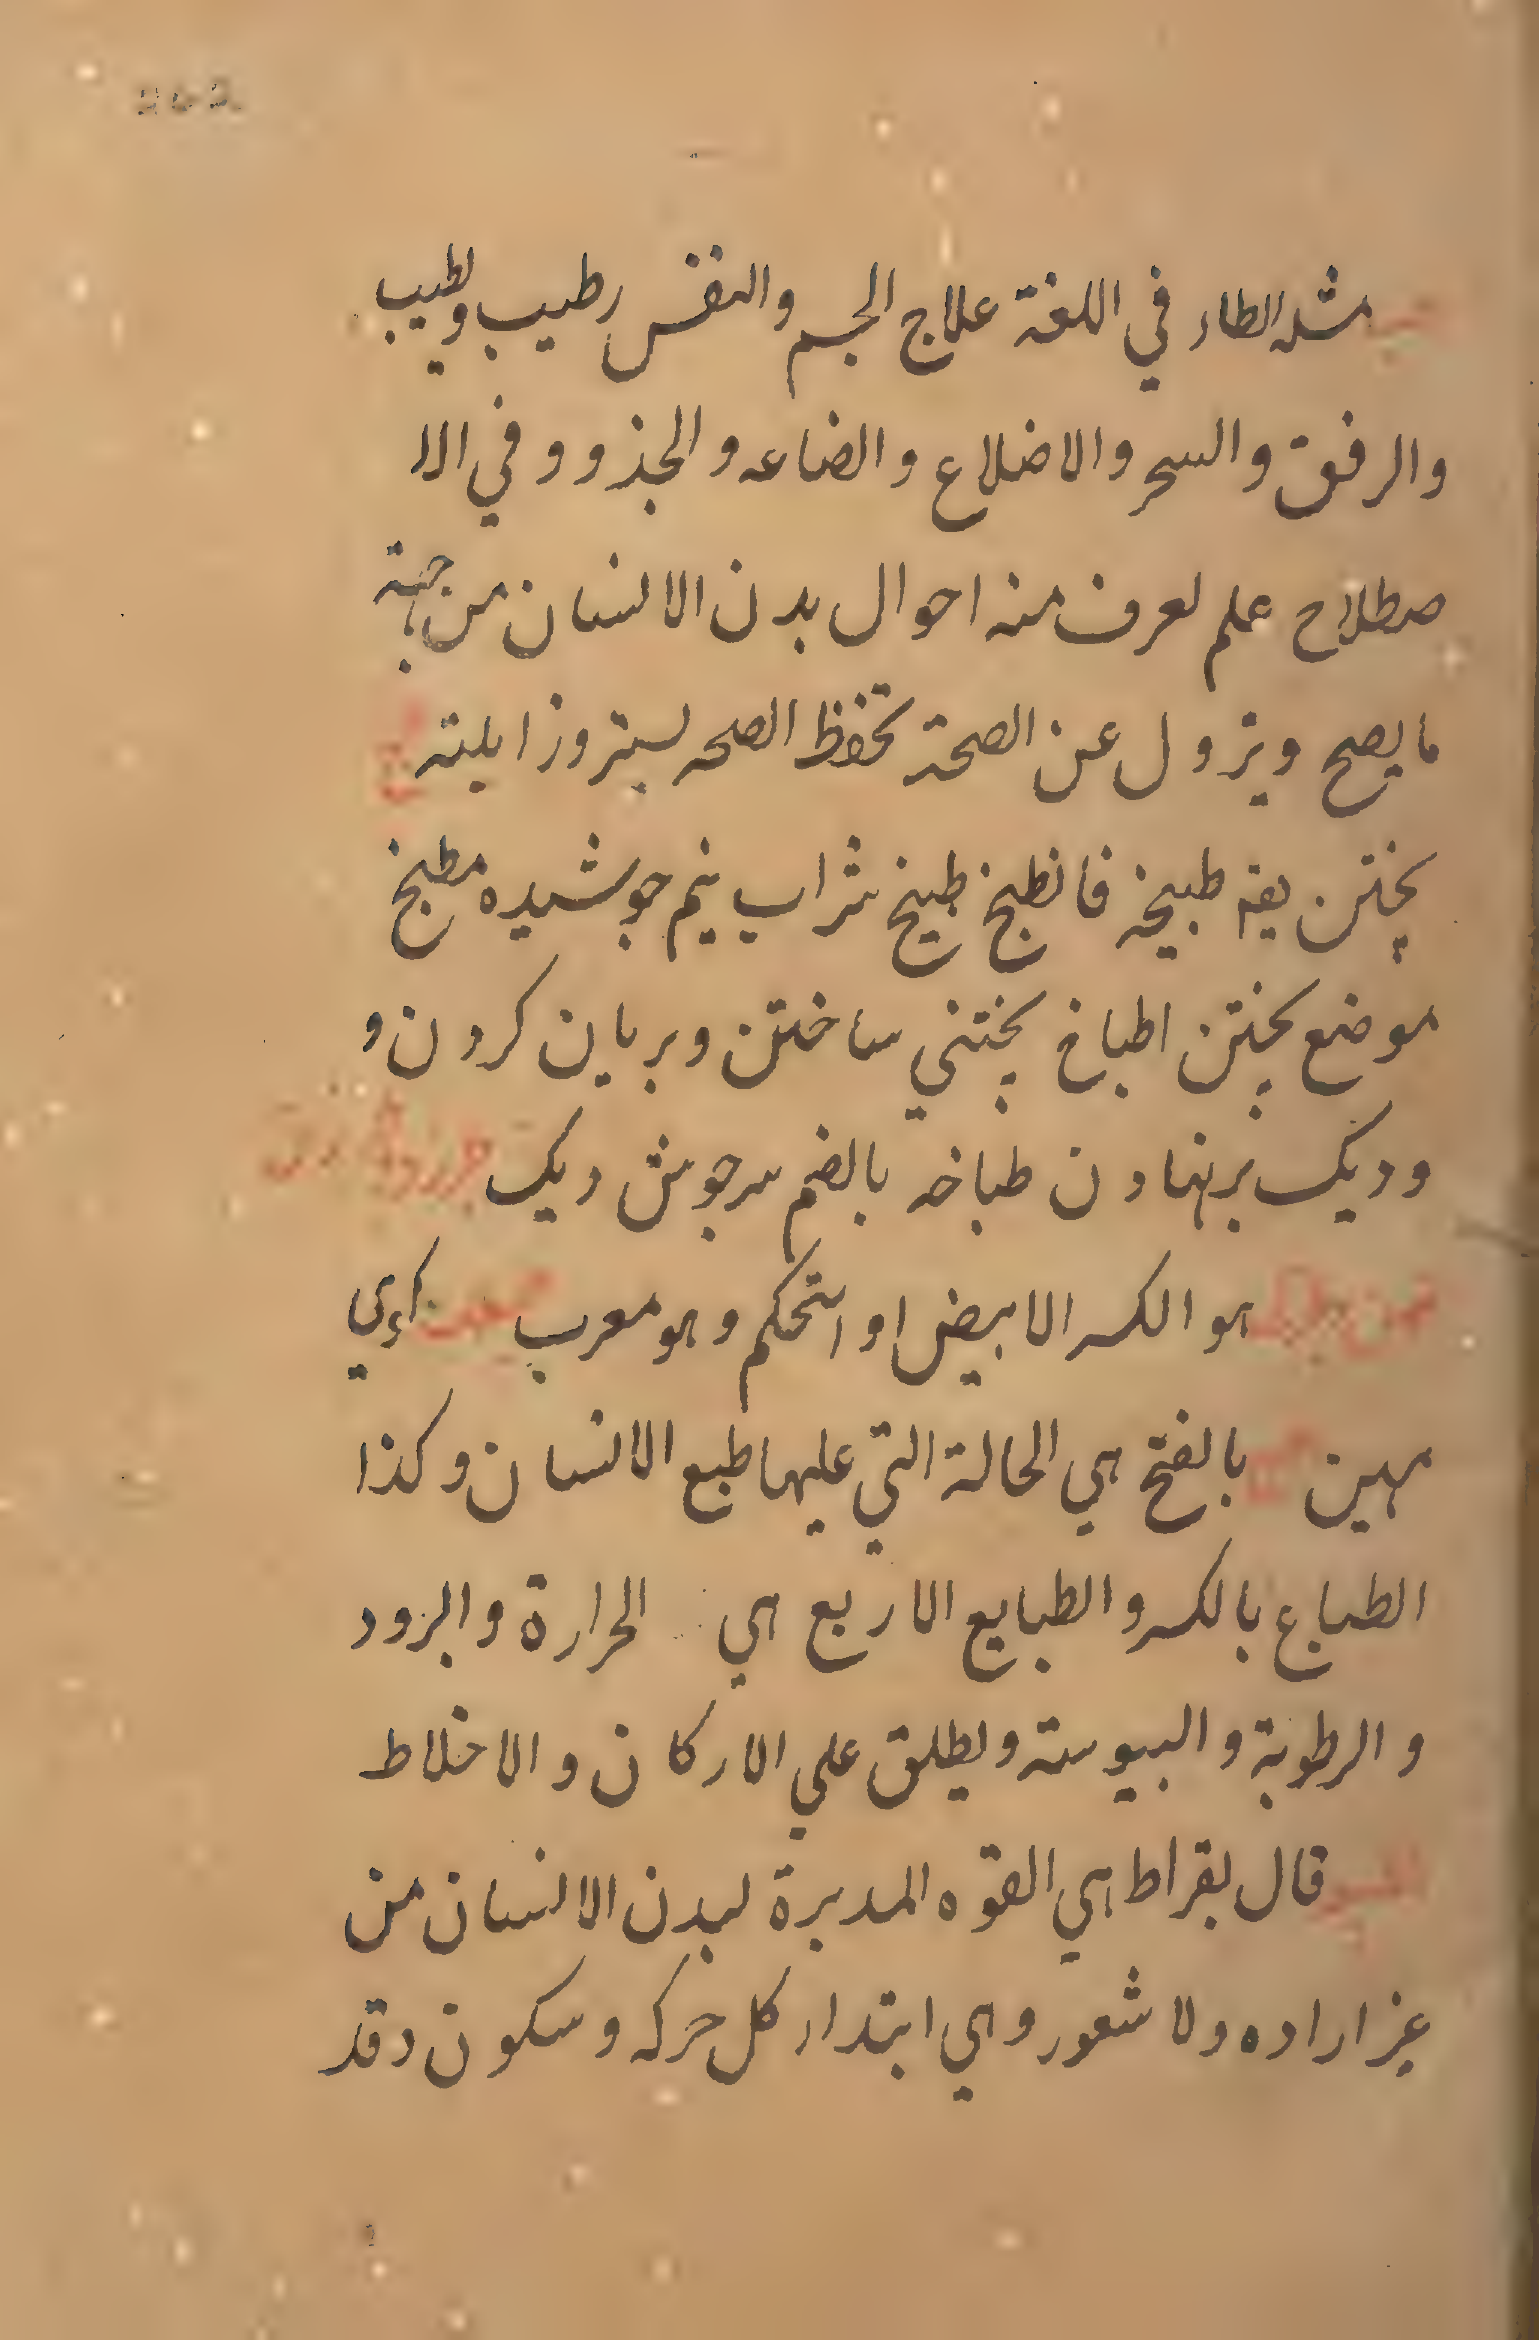 مثله الطاء في اللغة علاج الجسم والنفس رطيب وطيب
والرفق والسحر والاضلاع والضاعه والجذو وفي الا
صطلاح علم لعرف منه احوال بدن الانسان من جهة
ما يصح ويزول عن الصحة تحفظ الصحه ليستر وزايلته
پختن يقه طبيخه فانطبخ طبيخ شراب نيم جوشيده مطبخ
موضع پختن اطباخ پختني ساختن و بريان كردن و
و ديك برنهادن طباخه بالضم سرجوش ديك
هو الكسر الابيض او استحكم وهو معرب
مهين بالفتح هي الحالة التي عليها طبع الانسان وكذا
الطباع بالكسر والطبايع الاربع هي الحرارة والبرود
والرطوبة والبيوسته ويطلق علي الاركان والاخلاط
قال بقراط هي القوه المدبرة لبدن الانسان من
غير اراده ولا شعور وهي ابتداء كل حركه وسكون وقد